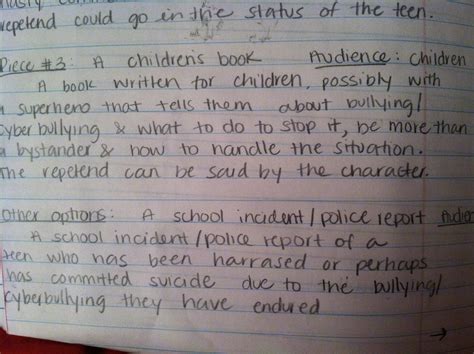 repetend could go in the status of the teen.
Piece #3: A children's book Audience: Children
A book written for children, possibly with
a superhero that tells them about bullying/
cyberbullying & what to do to stop it, be more than
a bystander & how to handle the situation.
The repetend can be said by the character.
Other options: A school incident/police report Audie
A school incident/police report of a
teen who has been harrased or perhaps
has committed suicide due to the bullying/
cyberbullying they have endured
→